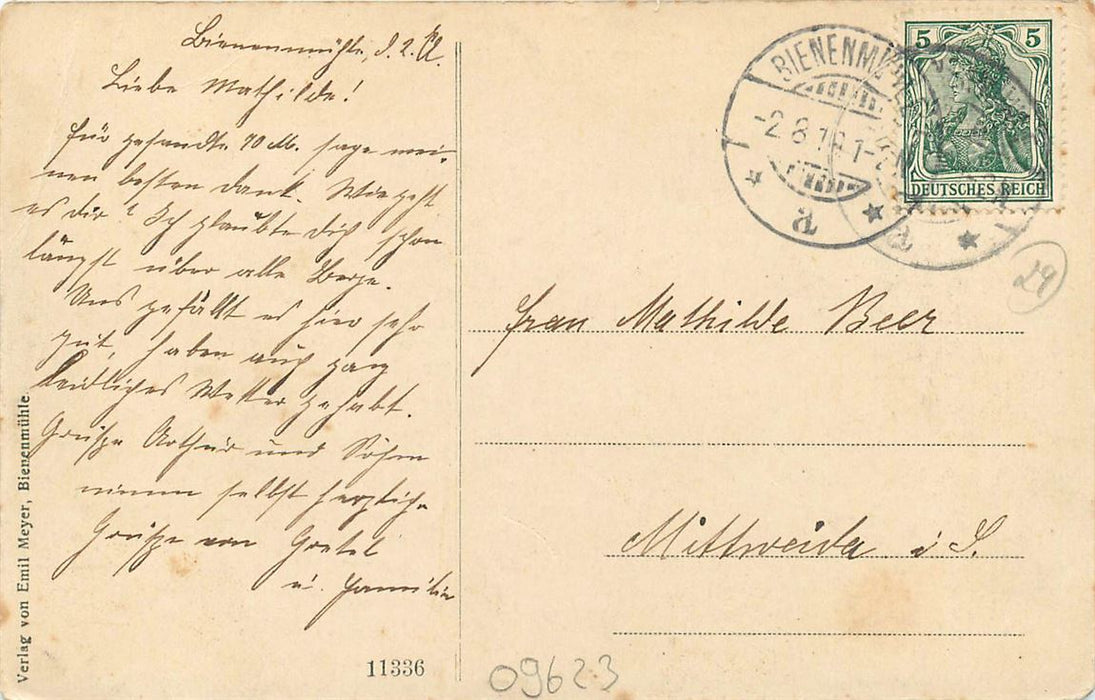 Bienenmühle, d. 2.
Liebe Mathilde!
Für gesandte 70 M. sage mei-
nen besten Dank. Wie geht
es dir? Ich glaubte dich schon
längst über alle Berge.
Uns gefällt es hier sehr
gut, haben auch ganz
leidliches Wetter gehabt.
Grüsse Arthur und Söhne
nimm selbst herzliche
Grüsse von Gretel
u. Familie
Verlag von Emil Meyer, Bienenmühle.
11336
09623
BIENENM
-2.8.1
a
a
5 5
DEUTSCHES REICH
29
Frau Mathilde Beer
Mittweida i S.